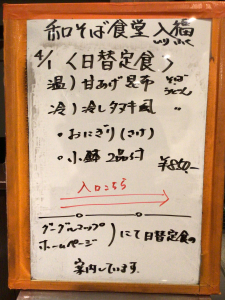 和そば食堂 入福
いりふく
4/1 〈日替定食〉
温）甘あげ昆布 そば
うどん
冷）冷しタヌキ風 〃
・おにぎり（さけ）
・小鉢 2品付 ¥850-
入口こちら
グーグルマップ
ホームページ ）にて日替定食の
案内しています。